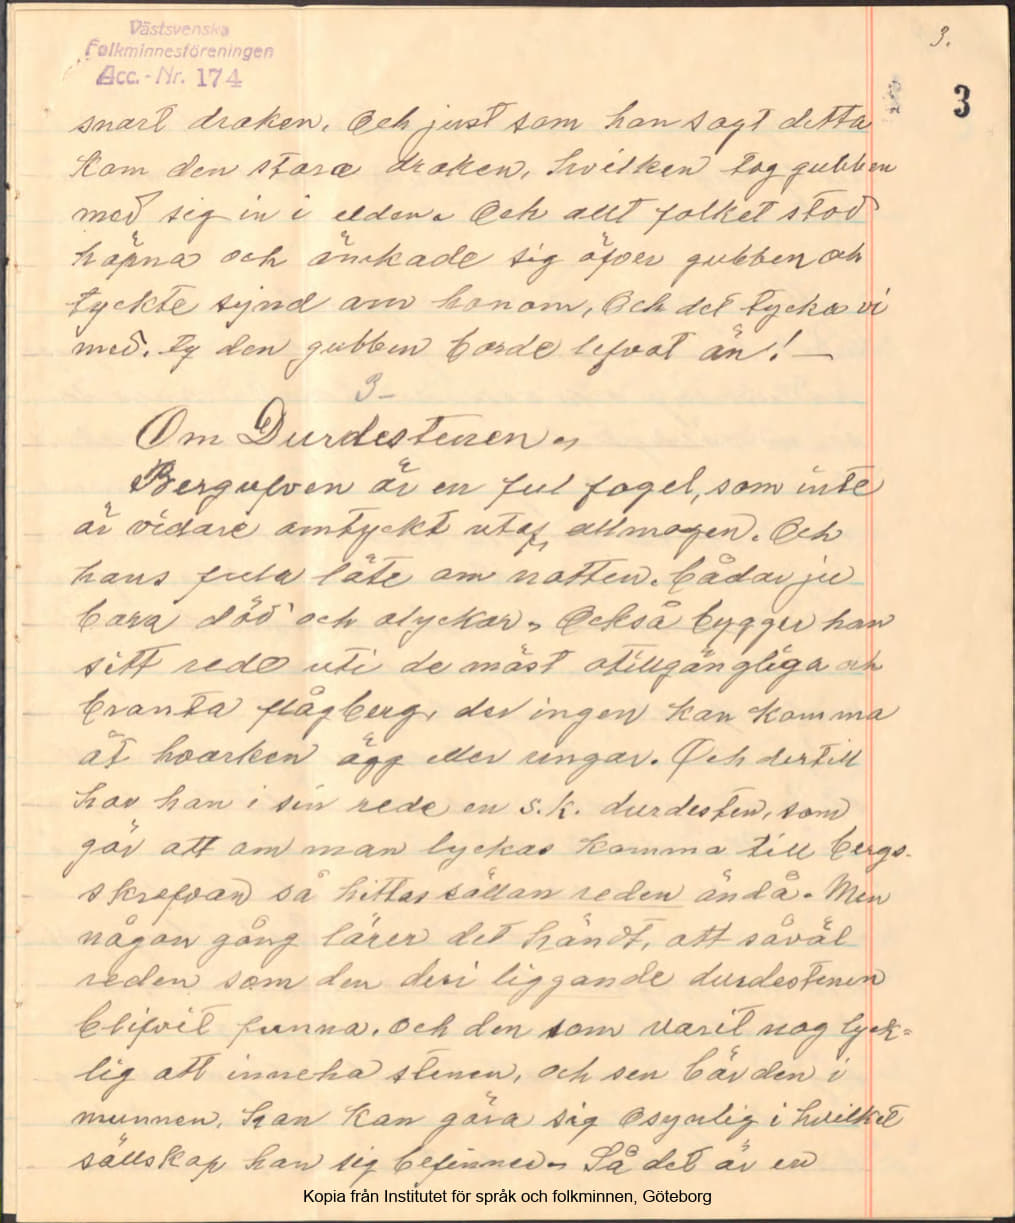 Västsvenska
Folkminnesföreningen
Acc.-Nr. 174
3.
3
snart draken. Och just som han sagt detta
kom den stora draken, hvilken tog gubben
med sig in i elden. Och allt folket stod
häpna och änckade sig öfver gubben och
tyckte synd om honom, Och det tycka vi
med. ty den gubben borde lefvat än! —
3 –
Om Durdestenen.
Bergufven är en ful fogel, som inte
är vidare omtyckt utaf allmogen. Och
hans fula läte om natten. bådar ju
bara död och olyckor. Också bygger han
sitt rede uti de mäst otillgängliga och
branta flågberg, der ingen kan komma
åt hvarken ägg eller ungar. Och dertill
har han i sin rede en s.k. durdesten, som
gör att om man lyckas komma till bergs-
skrefvan så hittas sällan reden ändå. Men
någon gång lärer det händt, att såväl
reden som den deri liggande durdestenen
blifvit funna. och den som varit nog lyck=
lig att inneha stenen, och sen bär den i
munnen, han kan göra sig osynlig i hvilket
sällskap han sig befinner. Så det är en
Kopia från Institutet för språk och folkminnen, Göteborg